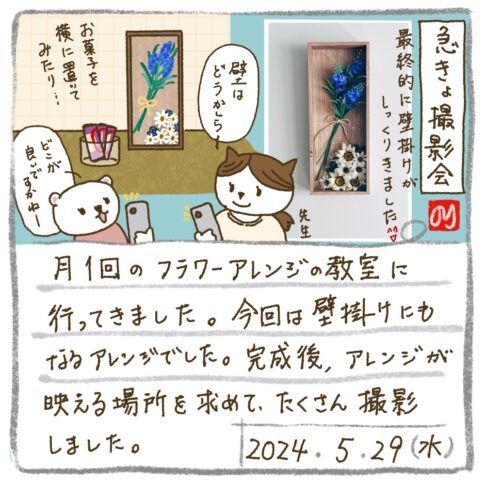 急きょ撮影会
最終的に壁掛けが
しっくりきました
壁は
どうかしら
お菓子を
横に置いて
みたり…
どこが
良いで
すかねー
先生
月1回のフラワーアレンジの教室に
行ってきました。今回は壁掛けにも
なるアレンジでした。完成後、アレンジが
映える場所を求めて、たくさん撮影
しました。
2024.5.29(水)